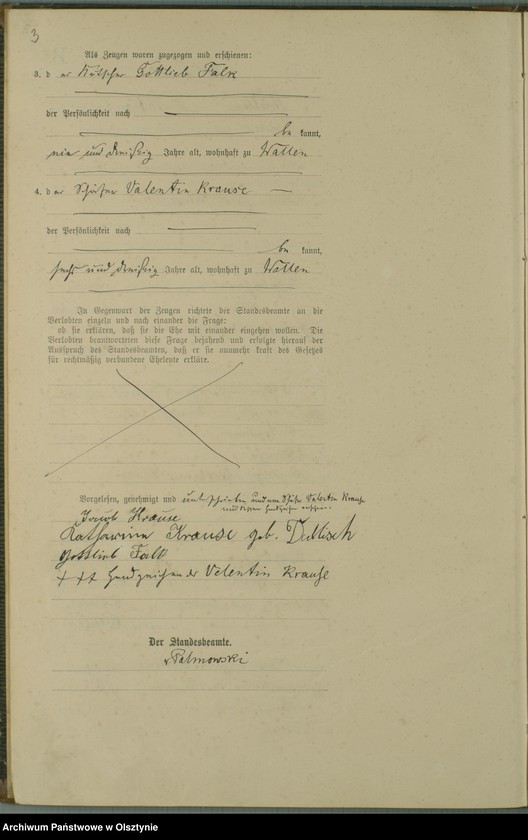 3
Als Zeugen waren zugezogen und erschienen:
3. der Kutscher Gottlieb Falk
der Persönlichkeit nach
bekannt,
neun und dreißig Jahre alt, wohnhaft zu Wallen
4. der Schäfer Valentin Krause
der Persönlichkeit nach
bekannt,
sechs und dreißig Jahre alt, wohnhaft zu Wallen
In Gegenwart der Zeugen richtete der Standesbeamte an die
Verlobten einzeln und nach einander die Frage:
ob sie erklären, daß sie die Ehe mit einander eingehen wollen. Die
Verlobten beantworteten diese Frage bejahend und erfolgte hierauf der
Ausspruch des Standesbeamten, daß er sie nunmehr kraft des Gesetzes
für rechtmäßig verbundene Eheleute erkläre.
Vorgelesen, genehmigt und unterschrieben und vom Schäfer Valentin Krause
Handzeichen versehen.
Jacob Krause
Katharina Krause geb.
Gottlieb Falk
+++ Handzeichen des Valentin Krause
Der Standesbeamte.
v. Palmowski
Archiwum Państwowe w Olsztynie